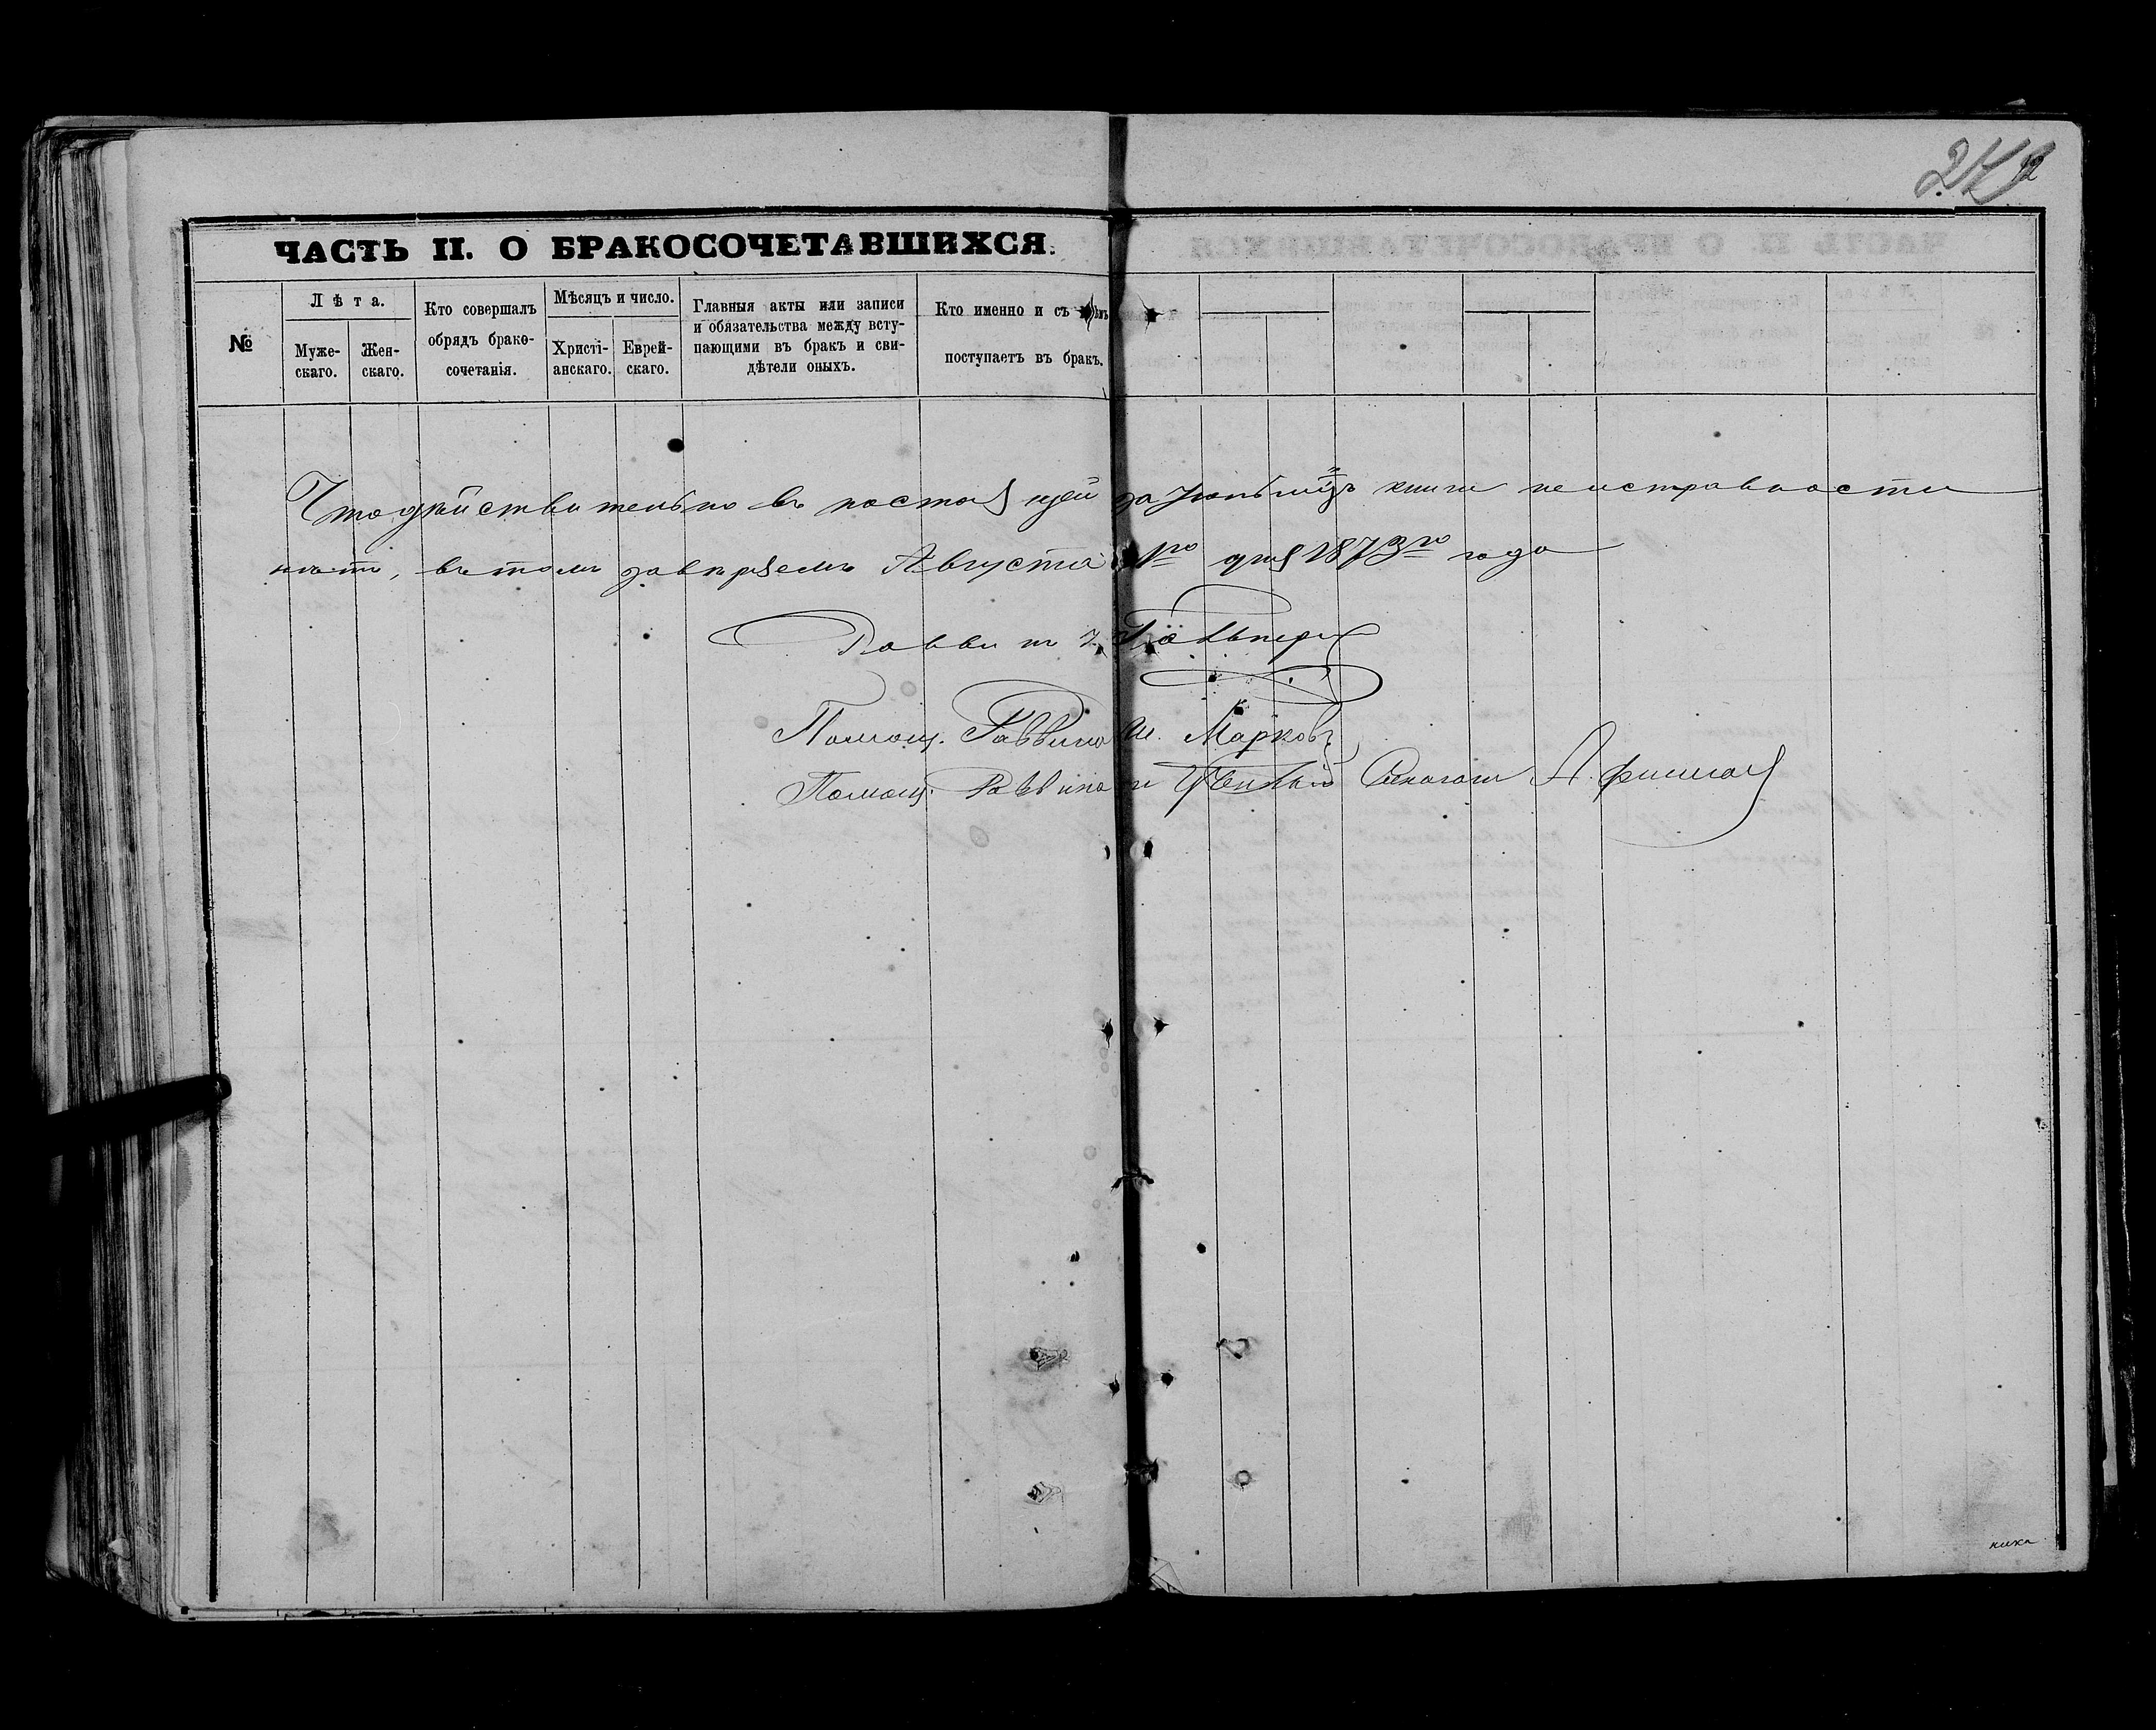 ЧАСТЬ II. О БРАКОСОЧЕТАВШИХСЯ.
№
Лѣта.
Муже-
скаго.
Жен-
скаго.
Кто совершалъ
обрядъ брако-
сочетанія.
Мѣсяцъ и число.
Христі-
анскаго.
Еврей-
скаго.
Главныя акты или записи
и обязательства между всту-
пающими въ бракъ и сви-
дѣтели оныхъ.
Кто именно и съ кѣмъ
поступаетъ въ бракъ.
Что дѣйствительно въ настоящей за Іюль мцъ книги неисправности
нѣтъ, въ томъ завѣряемъ Августа 1го дня 1873го года
Раввинъ
Помощ. Раввина Ш. Марковъ
Помощ. Раввина и Синагоги А. Фишман